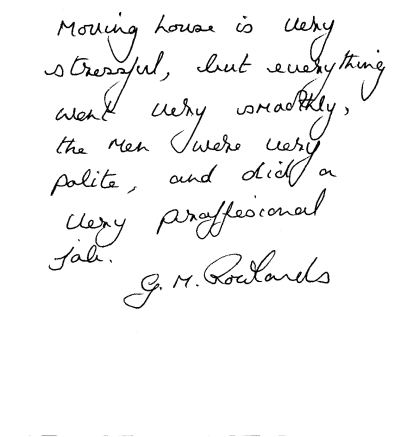 Moving house is very
stressful, but everything
went very smoothly,
the men were very
polite, and did a
very proffesional
job.
G. M. Rowlands